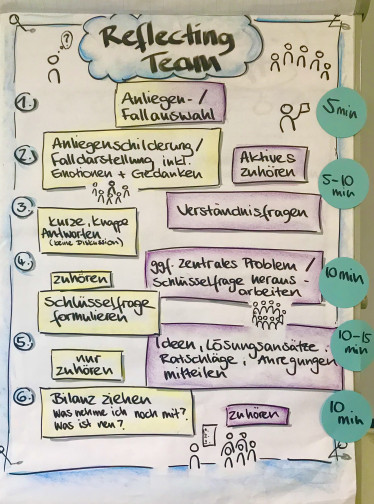 ?
Reflecting
Team
1.
Anliegen- /
Fallauswahl
5 min
2.
Anliegenschilderung /
Falldarstellung inkl.
Emotionen + Gedanken
Aktives
zuhören
5-10
min
3.
Kurze, knappe
Antworten
(keine Diskussion)
Verständnisfragen
4.
zuhören
Schlüsselfrage
formulieren
ggf. zentrales Problem /
Schlüsselfrage heraus-
arbeiten
10 min
5.
nur
zuhören
Ideen, Lösungsansätze,
Ratschläge, Anregungen
mitteilen
10-15
min
6.
Bilanz ziehen
Was nehme ich noch mit?
Was ist neu?
zuhören
10
min